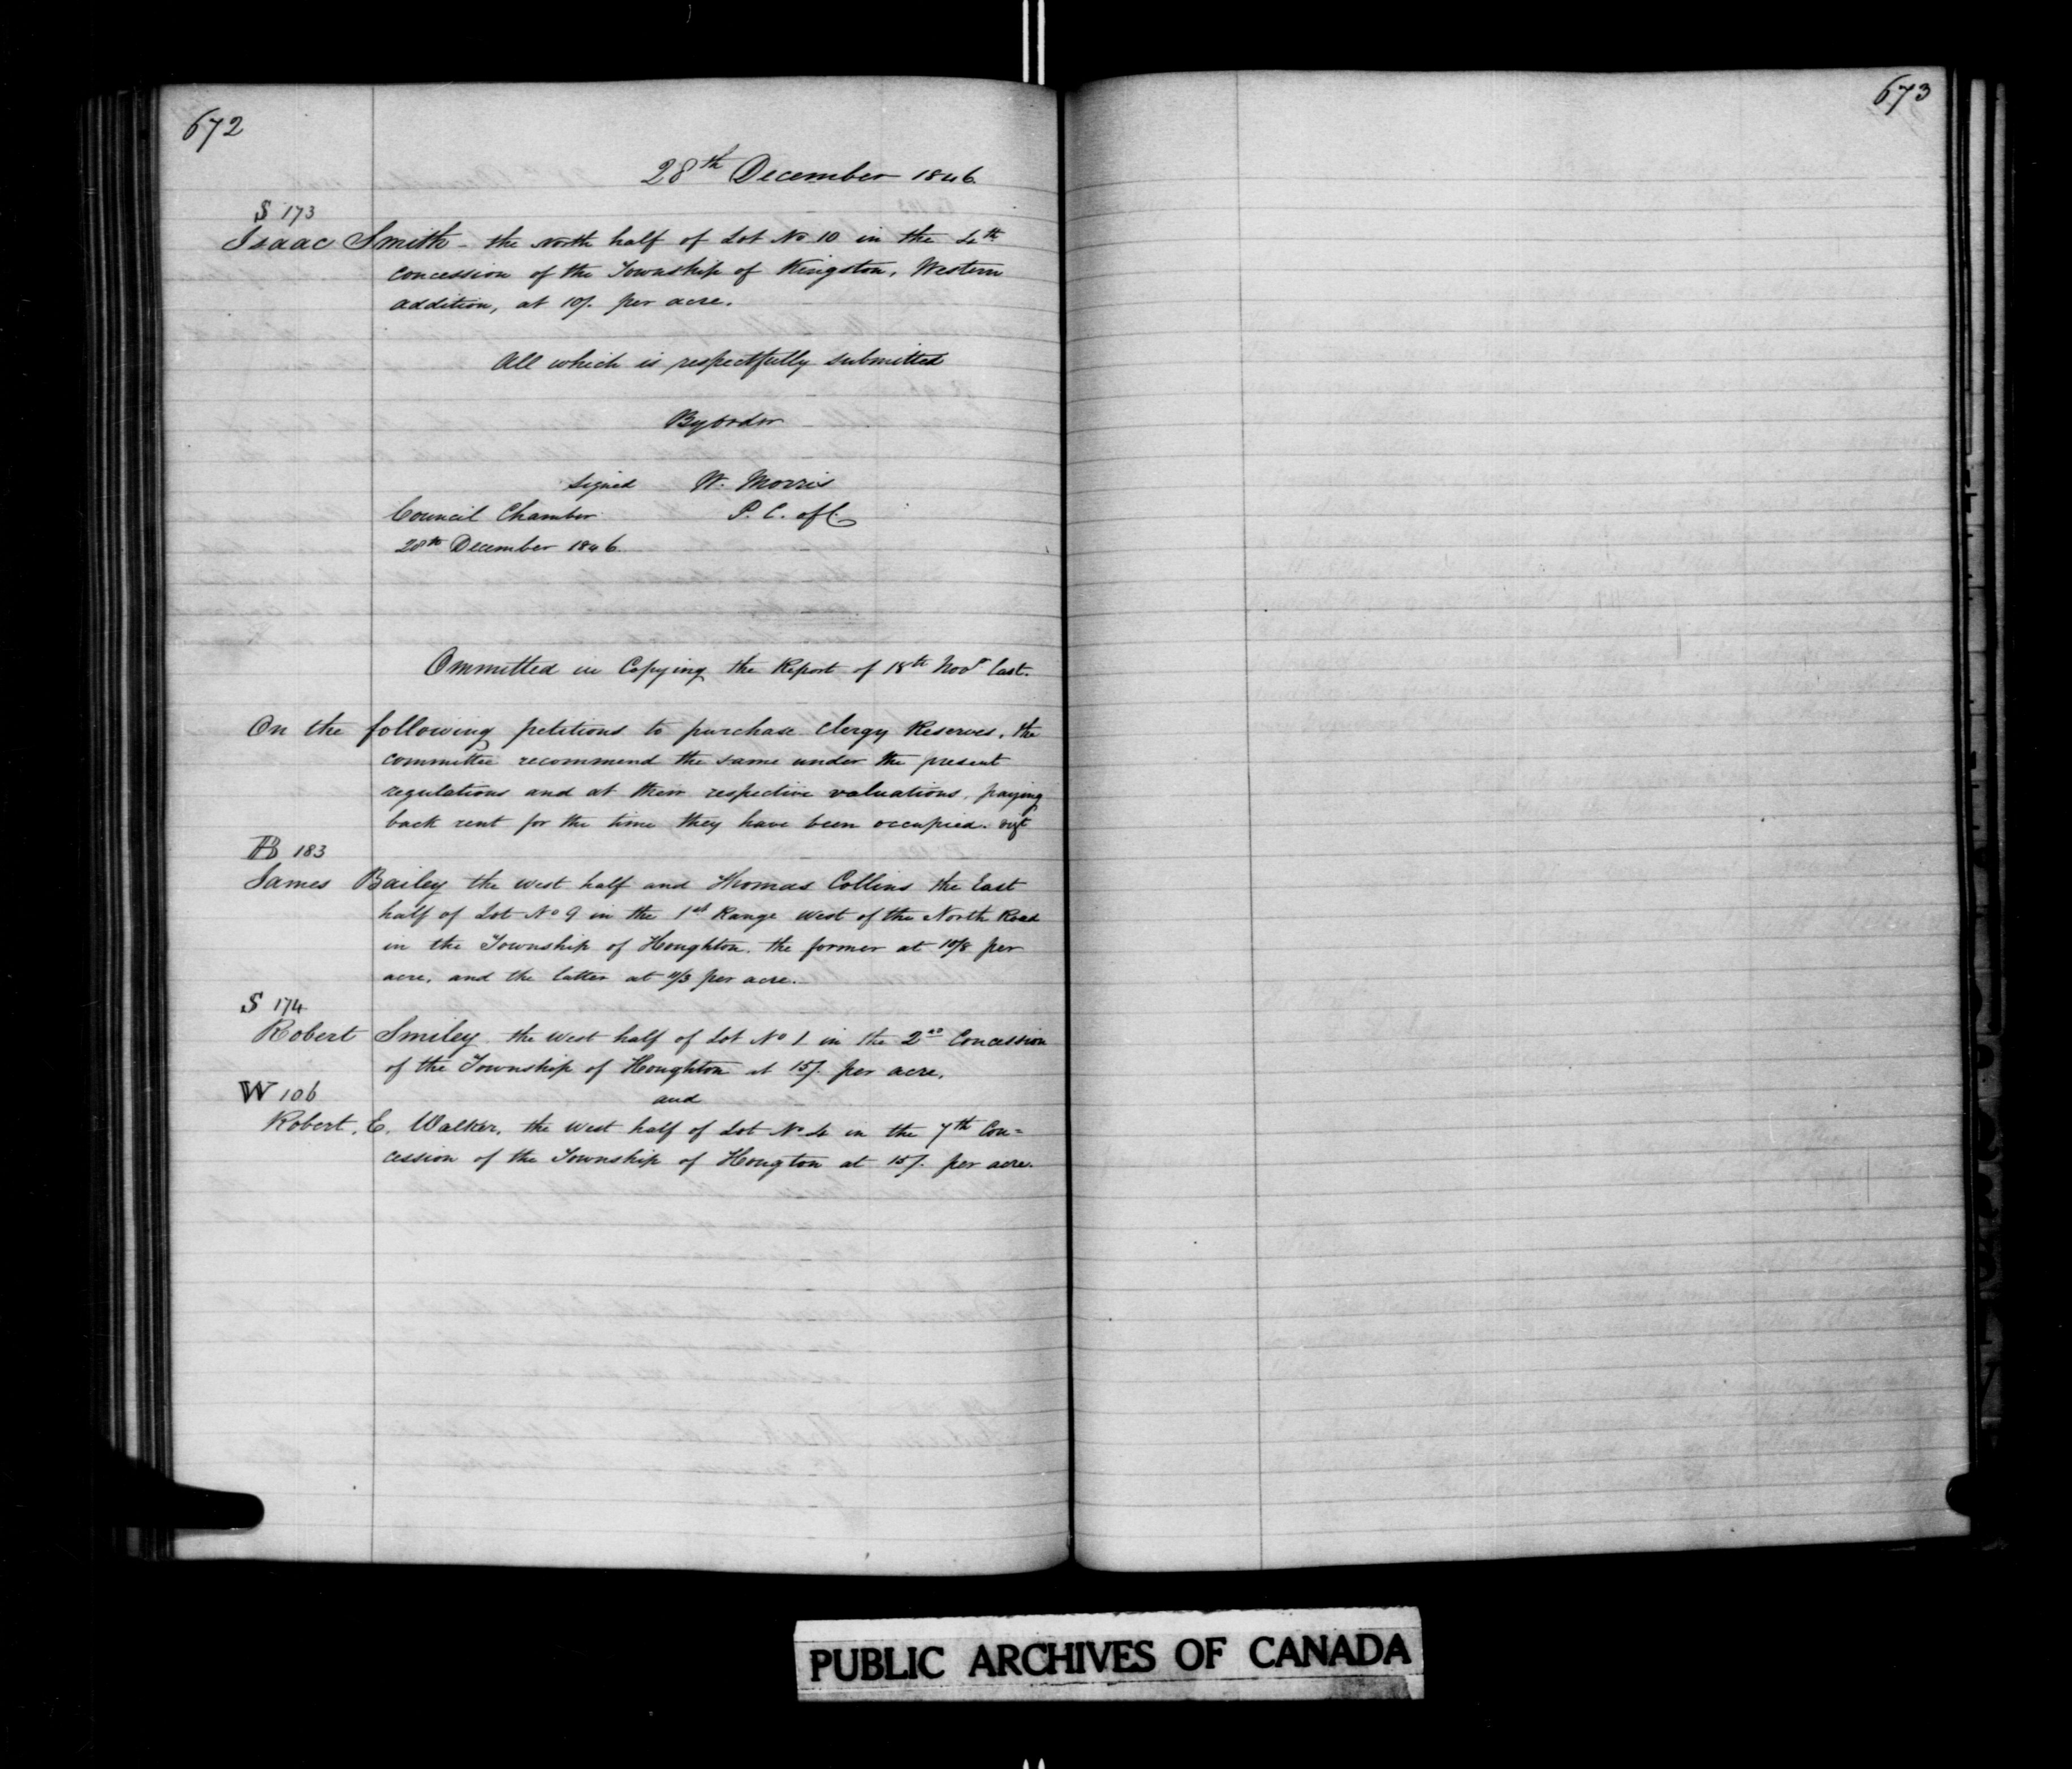 672
28th December 1846
S 173
Isaac Smith - the North half of Lot No 10 in the 4th
concession of the Township of Kingston, Western
addition, at 10/. per acre.
All which is respectfully submitted
By order
signed W. Morris
Council Chamber P. C. of C.
28th December 1846.
Ommitted in Copying the Report of 18th Novr last.
On the following petitions to purchase Clergy Reserves, the
committee recommend the same under the present
regulations and at their respective valuations, paying
back rent for the time they have been occupied.
B 183
James Bailey the west half and Thomas Collins the East
half of Lot No 9 in the 1st Range West of the North Road
in the Township of Houghton. the former at 10/8 per
acre, and the latter at 11/3 per acre.
S 174
Robert Smiley the west half of Lot No 1 in the 2nd Concession
of the Township of Houghton at 15/. per acre,
W 106 and
Robert. E. Walker, the west half of Lot No 4 in the 7th Con=
cession of the Township of Hougton at 15/. per acre.
673
PUBLIC ARCHIVES OF CANADA